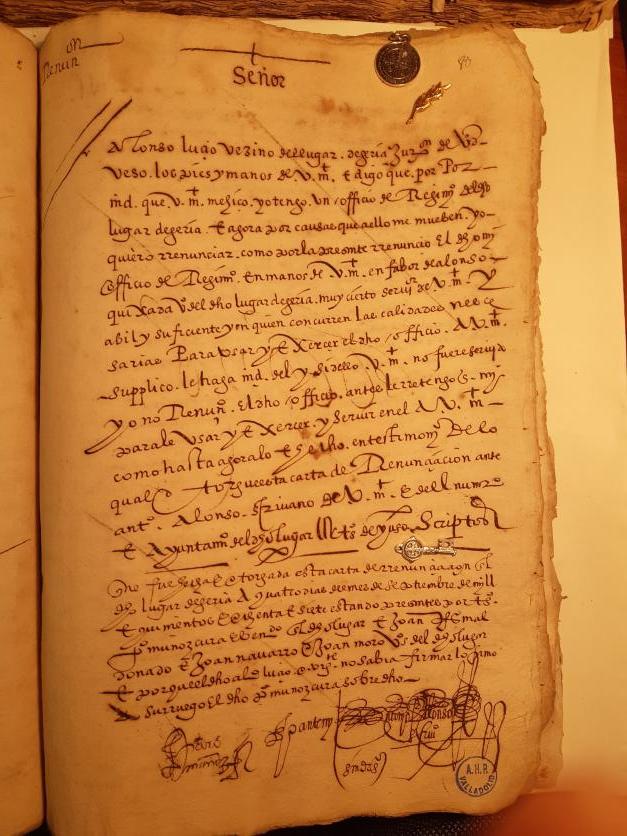 Renunon
Señor
Alonso lucio vezino del lugar. de gria Jurion de Va-
veso. los pies y manos de V. m. E digo que. por Por
md. que. V. m. me hico. yo tengo. Un officio de Regimo del dho
lugar de geria. E agora por causas que a ello me mueben. yo-
quiero rrenunciar. como por la presente rrenuncio El dho mi
officio de Regimo. En manos de V. m. en fabor de alonso
quixada vo del dho lugar de geria. muy cierto servior de V. m. y
abil y suficiente y en quien concurren las calidades nece
sarias Para Usar y Exercer el dho officio. A V. m.
supplico. le haga md. del y si dello. V. m. no fuere servido
yo no Renuno. El dho officio. antes le rretengo En my
para le Usar y Exercer. y servir en el A V. m.
como hasta agora lo E hecho. en testimonyo De lo
qual otorgue esta carta de Renunciacion ante
anto. Alonso. Escrivano de V. m. E del numero
E Ayuntamo del dho lugar tos de yuso. Scriptos
Que fue fecha E otorgada esta carta de rrenunciacion En el
dho lugar de geria A quatro dias del mes de Setiembre de mill
E quinientos E E siete estando presentes por tos.
po munoz cura E del dho lugar E Joan
donado E Joan navarro E Joan moro Vos del dho lugar
E porque el dho alo lucio dixo no sabia firmar lo firmo
a su rruego El dho po munoz cura sobre dho
Pedro
munoz
Paso ante my
Antonio Alonso
srivo
A.H.P.
VALLADOLID